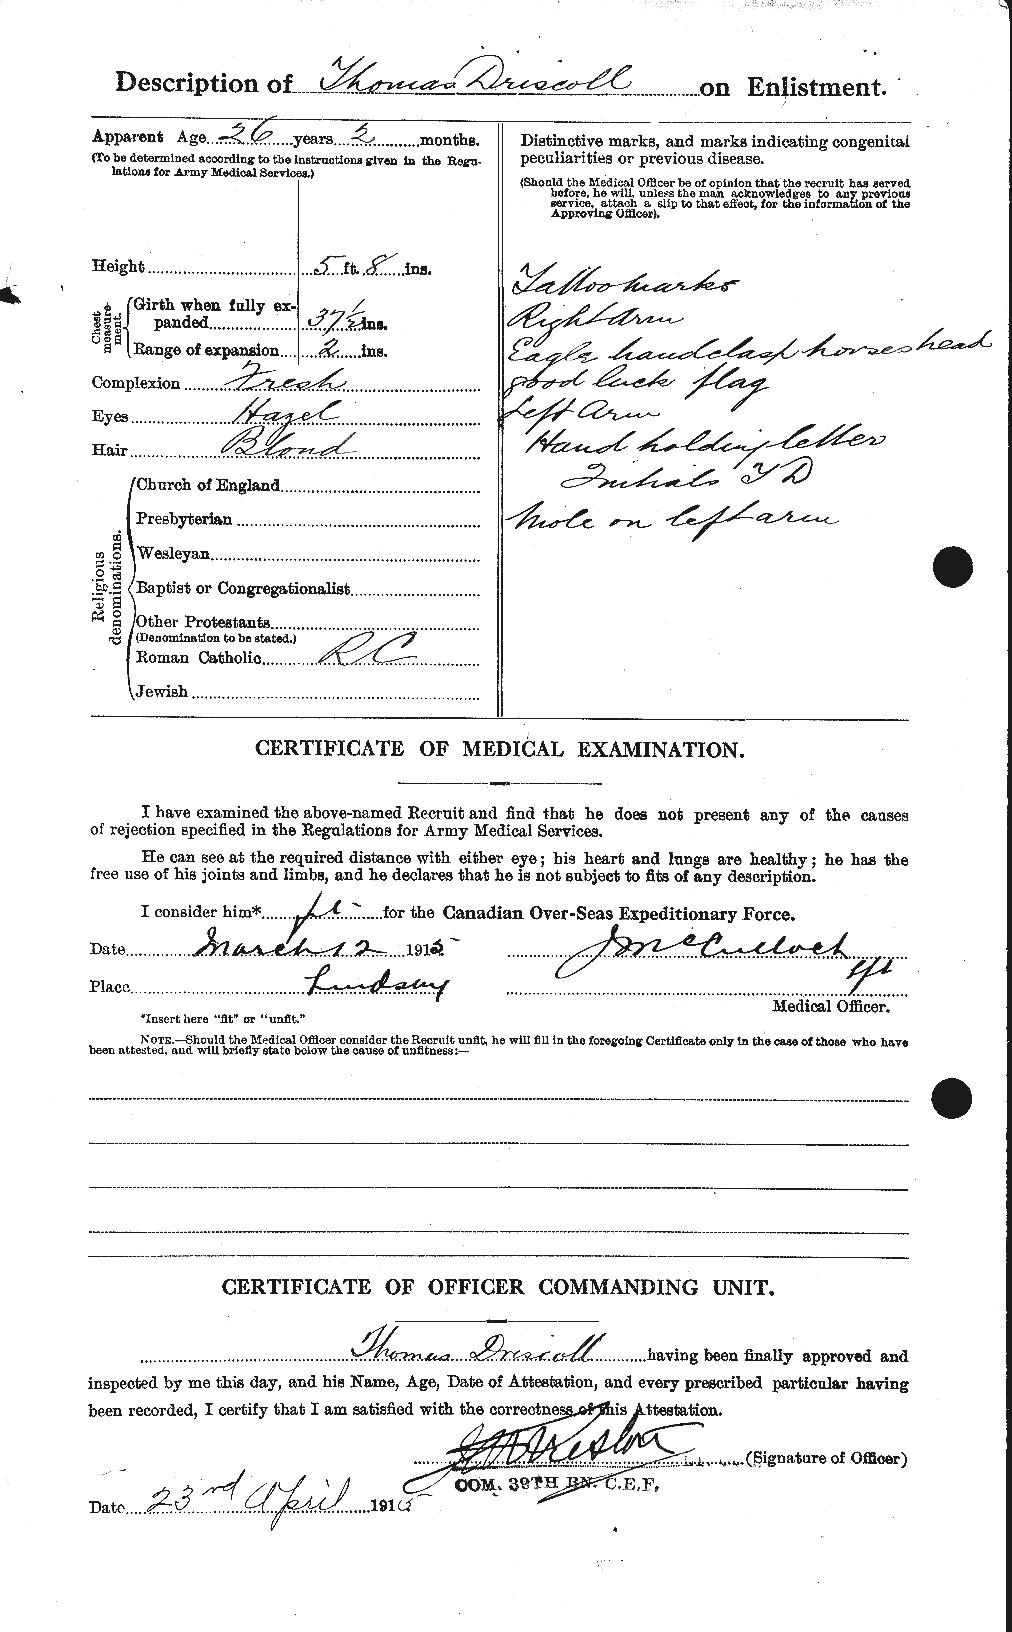 Description of Thomas Driscoll on Enlistment.
Apparent Age 26 years 2 months.
(To be determined according to the instructions given in the Regu-
lations for Army Medical Services.)
Height 5 ft. 8 ins.
Chest measure-ment.
Girth when fully ex-
panded 37½ ins.
Range of expansion 2 ins.
Complexion Fresh
Eyes Hazel
Hair Blond
Religious denominations.
Church of England
Presbyterian
Wesleyan
Baptist or Congregationalist
Other Protestants
(Denomination to be stated.)
Roman Catholic RC
Jewish
Distinctive marks, and marks indicating congenital
peculiarities or previous disease.
(Should the Medical Officer be of opinion that the recruit has served
before, he will, unless the man acknowledges to any previous
service, attach a slip to that effect, for the information of the
Approving Officer).
Tattoo marks
Right Arm
Eagle handclasp horseshead
good luck flag
Left Arm
Hand holding letter
Initials T D
Mole on left arm
CERTIFICATE OF MEDICAL EXAMINATION.
I have examined the above-named Recruit and find that he does not present any of the causes
of rejection specified in the Regulations for Army Medical Services.
He can see at the required distance with either eye; his heart and lungs are healthy; he has the
free use of his joints and limbs, and he declares that he is not subject to fits of any description.
I consider him* fit for the Canadian Over-Seas Expeditionary Force.
Date March 12 1915 J McCulloch
Place Lindsay
Medical Officer.
*Insert here "fit" or "unfit."
NOTE.—Should the Medical Officer consider the Recruit unfit, he will fill in the foregoing Certificate only in the case of those who have
been attested, and will briefly state below the cause of unfitness:—
CERTIFICATE OF OFFICER COMMANDING UNIT.
Thomas Driscoll having been finally approved and
inspected by me this day, and his Name, Age, Date of Attestation, and every prescribed particular having
been recorded, I certify that I am satisfied with the correctness of this Attestation.
Preston (Signature of Officer)
COM. 39TH BN. C.E.F.
Date 23rd April 1915